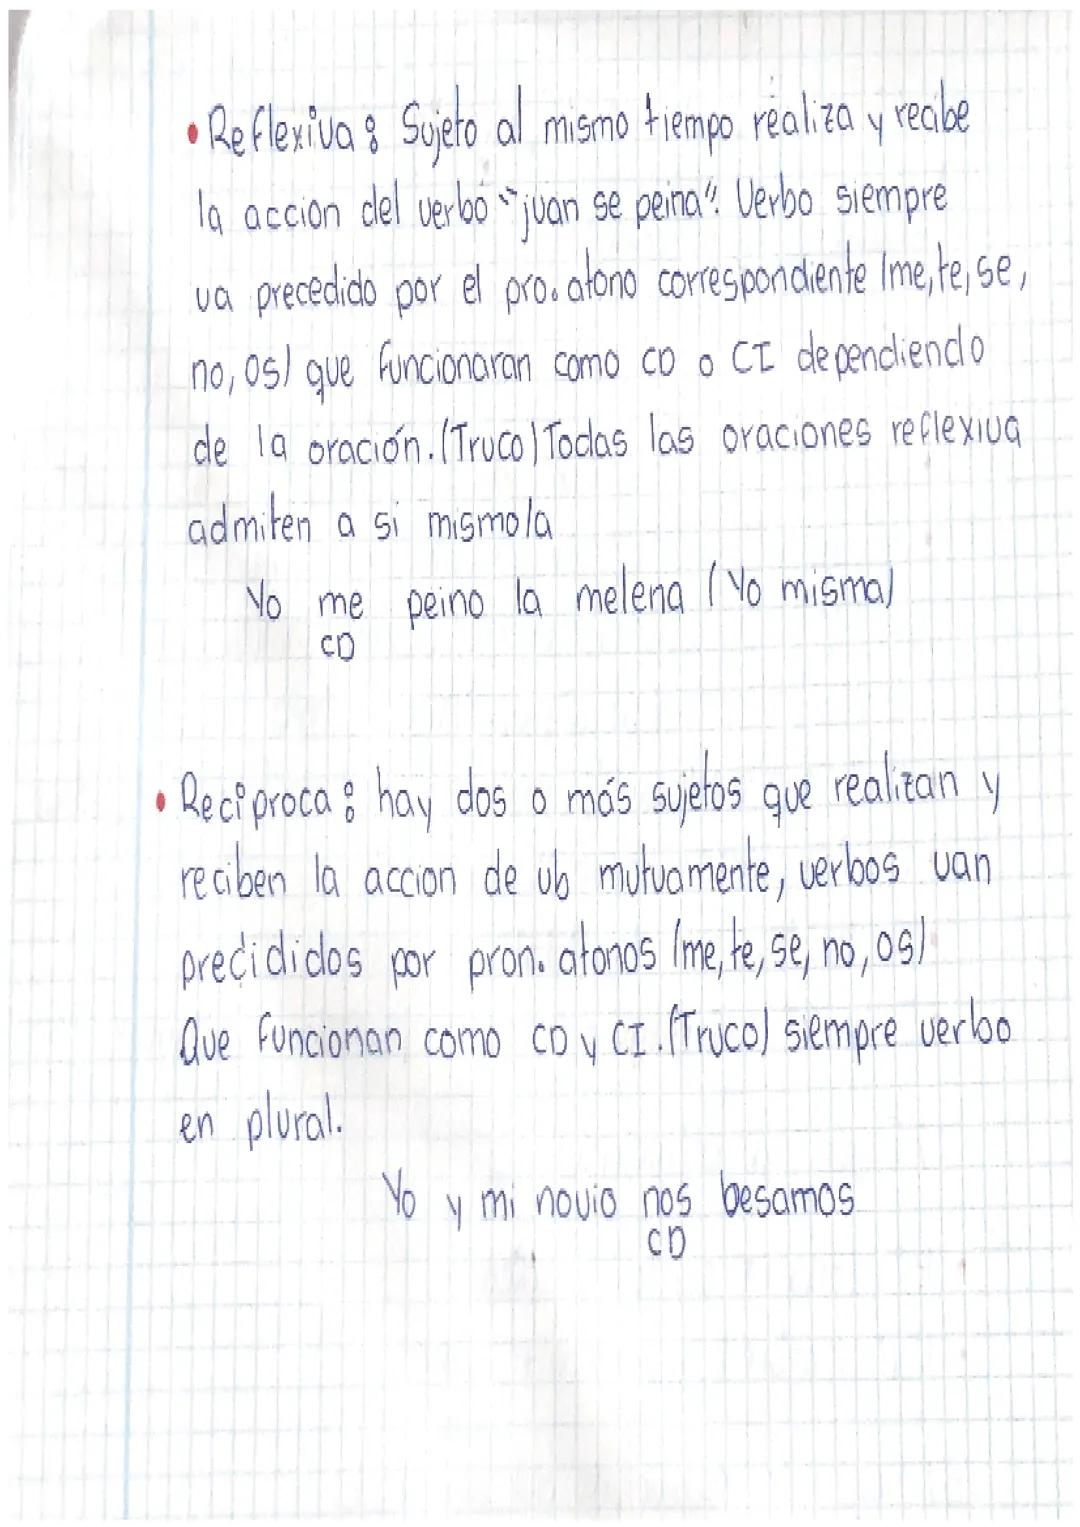 • Reflexiva: Sujeto al mismo tiempo realiza y recibe
la accion del verbo "juan se peina". Verbo siempre
va precedido por el pro. atono correspondiente (me, te, se,
no, os) que funcionaran como CD o CI dependiendo
de la oración. (Truco) Todas las oraciones reflexiva
admiten a si mismo/a
Yo me peino la melena (Yo misma)
CD
• Reciproca: hay dos o más sujetos que realizan y
reciben la accion de vb mutuamente, verbos van
precididos por pron. atonos (me, te, se, no, os)
Que funcionan como CD y CI. (Truco) siempre verbo
en plural.
Yo y mi novio nos besamos
CD